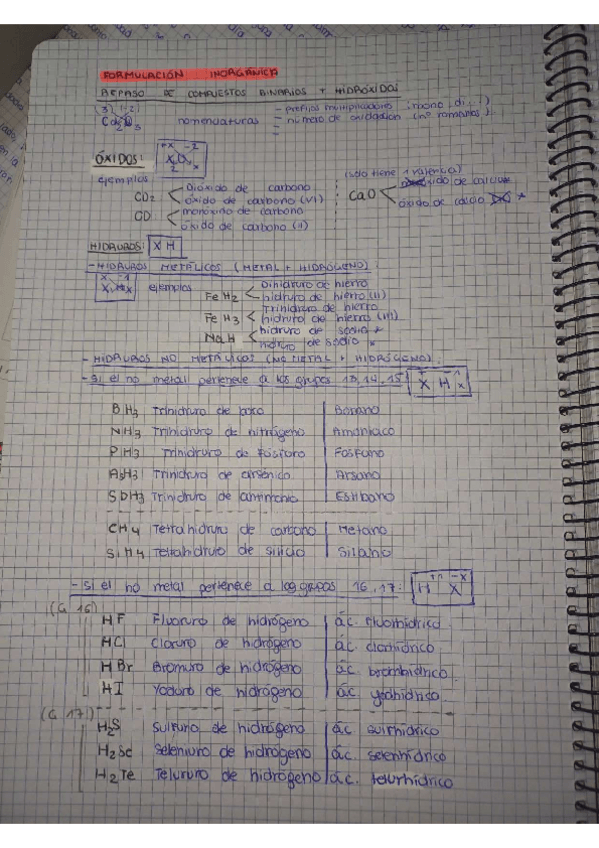 FORMULACIÓN INORGÁNICA
REPASO DE COMPUESTOS BINARIOS + HIDRÓXIDOS
nomenclaturas - prefijos multiplicadores (mono, di, ...)
- número de oxidación (nº romanos).
ÓXIDOS: X₂Oₓ
ejemplos (solo tiene 1 valencia)
CO₂ Dióxido de carbono
óxido de carbono (VI)
CaO óxido de calcio
óxido de calcio
CO monóxido de carbono
óxido de carbono (II)
HIDRUROS: XH
- HIDRUROS METÁLICOS (METAL + HIDRÓGENO):
ejemplos
FeH₂ Dihidruro de hierro
hidruro de hierro (II)
FeH₃ Trihidruro de hierro
hidruro de hierro (III)
NaH hidruro de sodio
hidruro de sodio
- HIDRUROS NO METÁLICOS (NO METAL + HIDRÓGENO).
- Si el no metal pertenece a los grupos 13, 14, 15: X Hₓ
BH₃ Trihidruro de boro Borano
NH₃ Trihidruro de nitrógeno Amoniaco
PH₃ Trihidruro de fósforo Fosfano
AsH₃ Trihidruro de arsénico Arsano
SbH₃ Trihidruro de antimonio Estibano
CH₄ Tetrahidruro de carbono Metano
SiH₄ Tetrahidruro de silicio Silano
- Si el no metal pertenece a los grupos 16, 17: H X
(G. 16)
HF Fluoruro de hidrógeno ác. fluorhídrico
HCl Cloruro de hidrógeno ác. clorhídrico
HBr Bromuro de hidrógeno ác. bromhídrico
HI Yoduro de hidrógeno ác. yodhídrico
(G. 17)
H₂S Sulfuro de hidrógeno ác. sulfhídrico
H₂Se Seleniuro de hidrógeno ác. selenhídrico
H₂Te Telururo de hidrógeno ác. telurhídrico